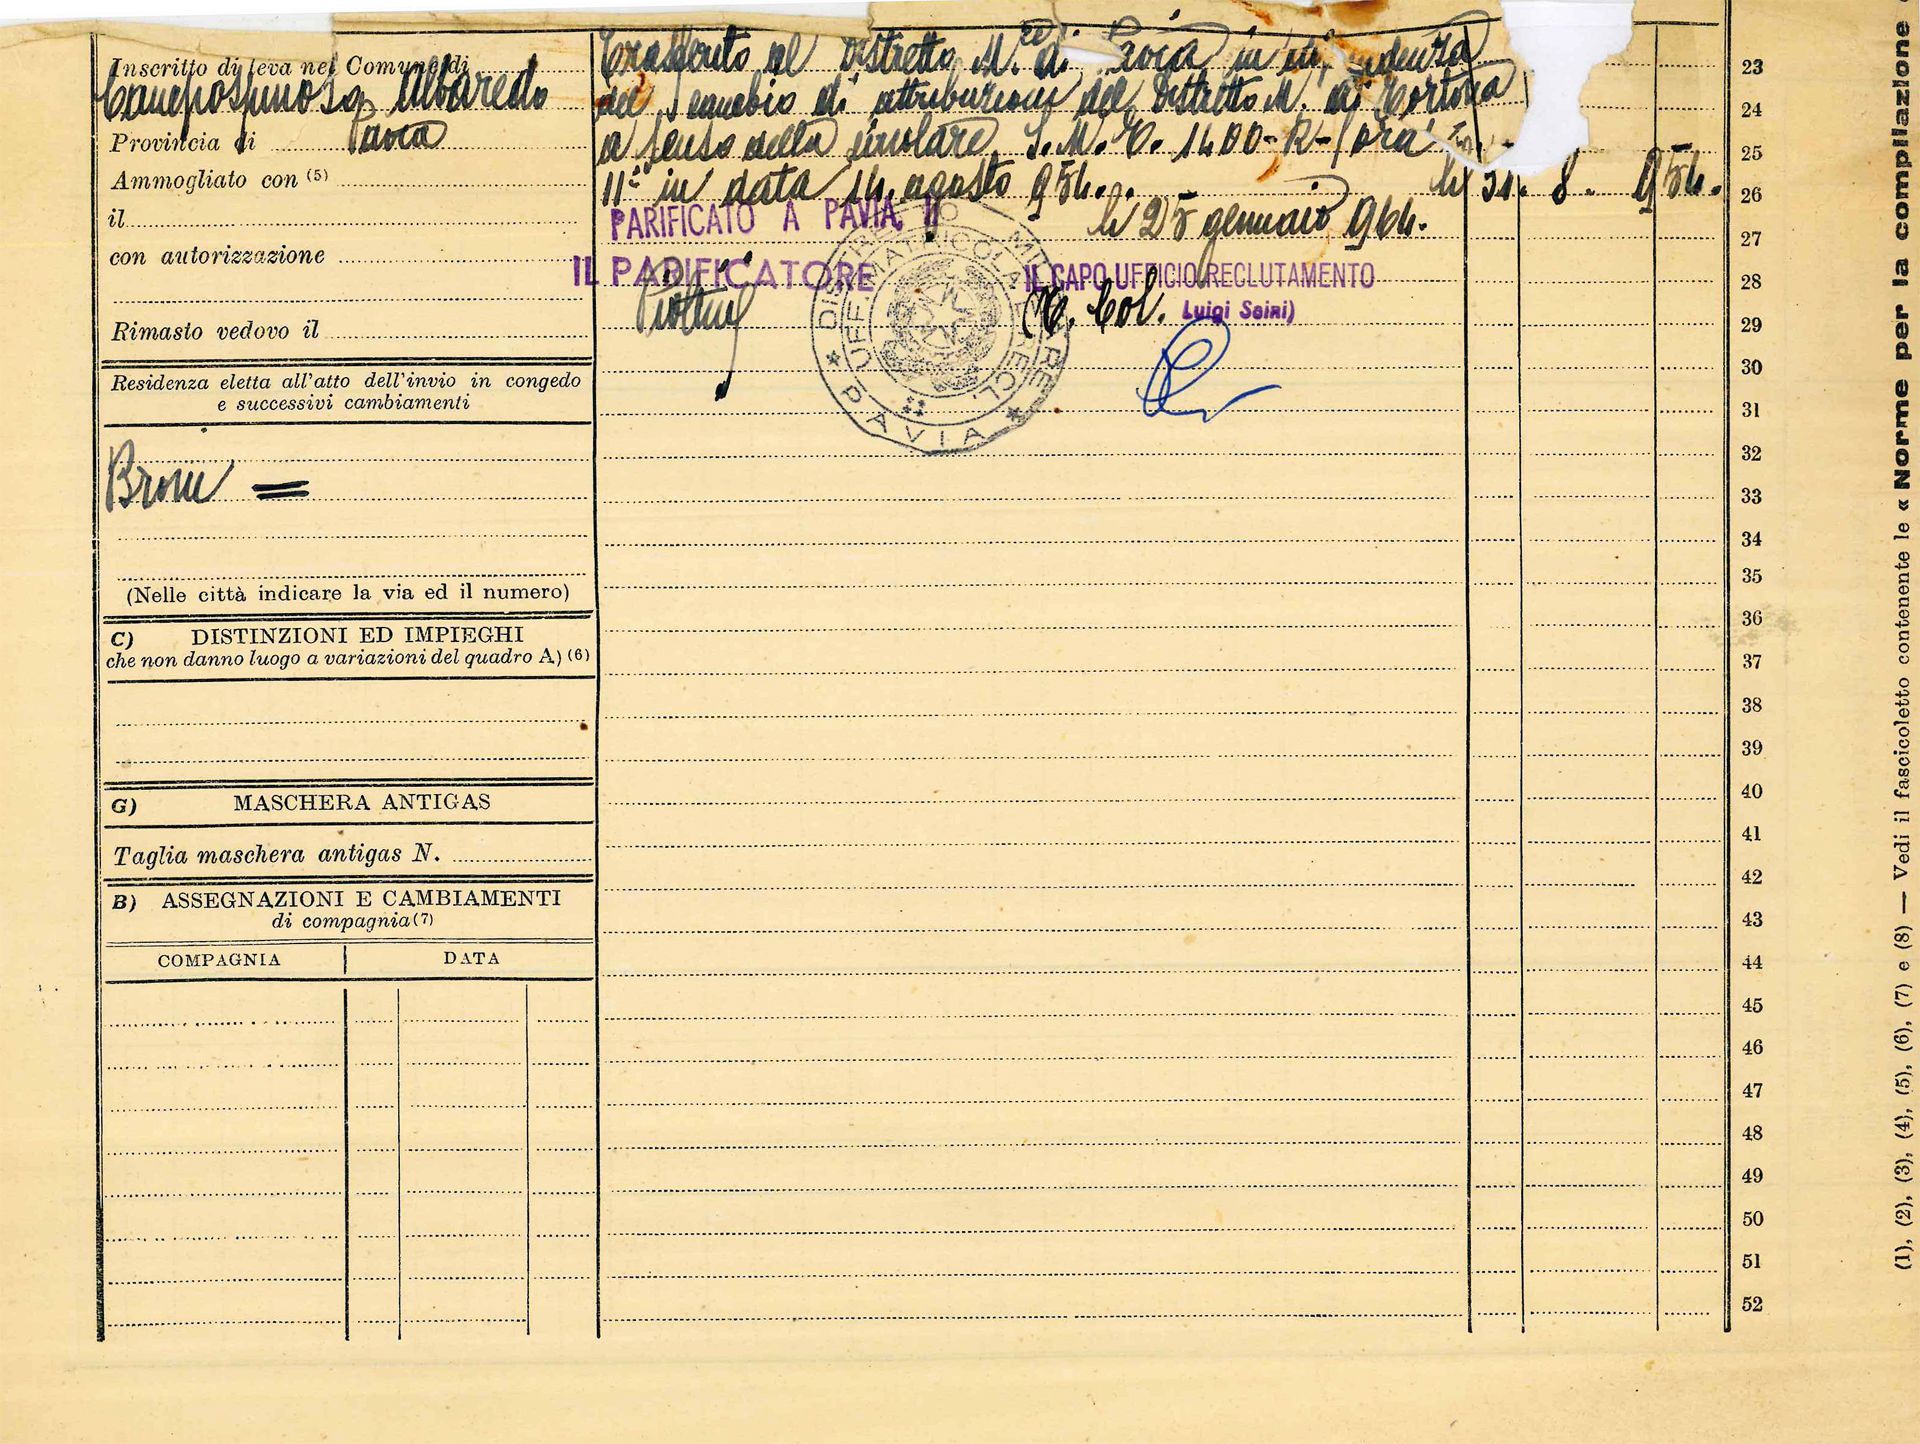 Inscritto di leva nel Comune di
Albaredo
Provincia di Pavia
Ammogliato con (5)
il
con autorizzazione
Rimasto vedovo il
Residenza eletta all'atto dell'invio in congedo
e successivi cambiamenti
Broni =
(Nelle città indicare la via ed il numero)
C) DISTINZIONI ED IMPIEGHI
che non danno luogo a variazioni del quadro A) (6)
G) MASCHERA ANTIGAS
Taglia maschera antigas N.
B) ASSEGNAZIONI E CAMBIAMENTI
di compagnia (7)
COMPAGNIA DATA
Trasferito al Distretto M.re di Pavia in
del cambio di attribuzioni del Distretto M. di Tortona
a senso della circolare S.M.E. 1400-R-
11° in data 14 agosto 954. li 31. 8. 954.
PARIFICATO A PAVIA, li 25 gennaio 964.
IL PARIFICATORE
IL CAPO UFFICIO RECLUTAMENTO
(T. Col. Luigi Saini)
DISTRETTO MILITARE
PAVIA
UFF. MATRICOLA RECL.
23
24
25
26
27
28
29
30
31
32
33
34
35
36
37
38
39
40
41
42
43
44
45
46
47
48
49
50
51
52
(1), (2), (3), (4), (5), (6), (7) e (8) — Vedi il fascicoletto contenente le « Norme per la compilazione